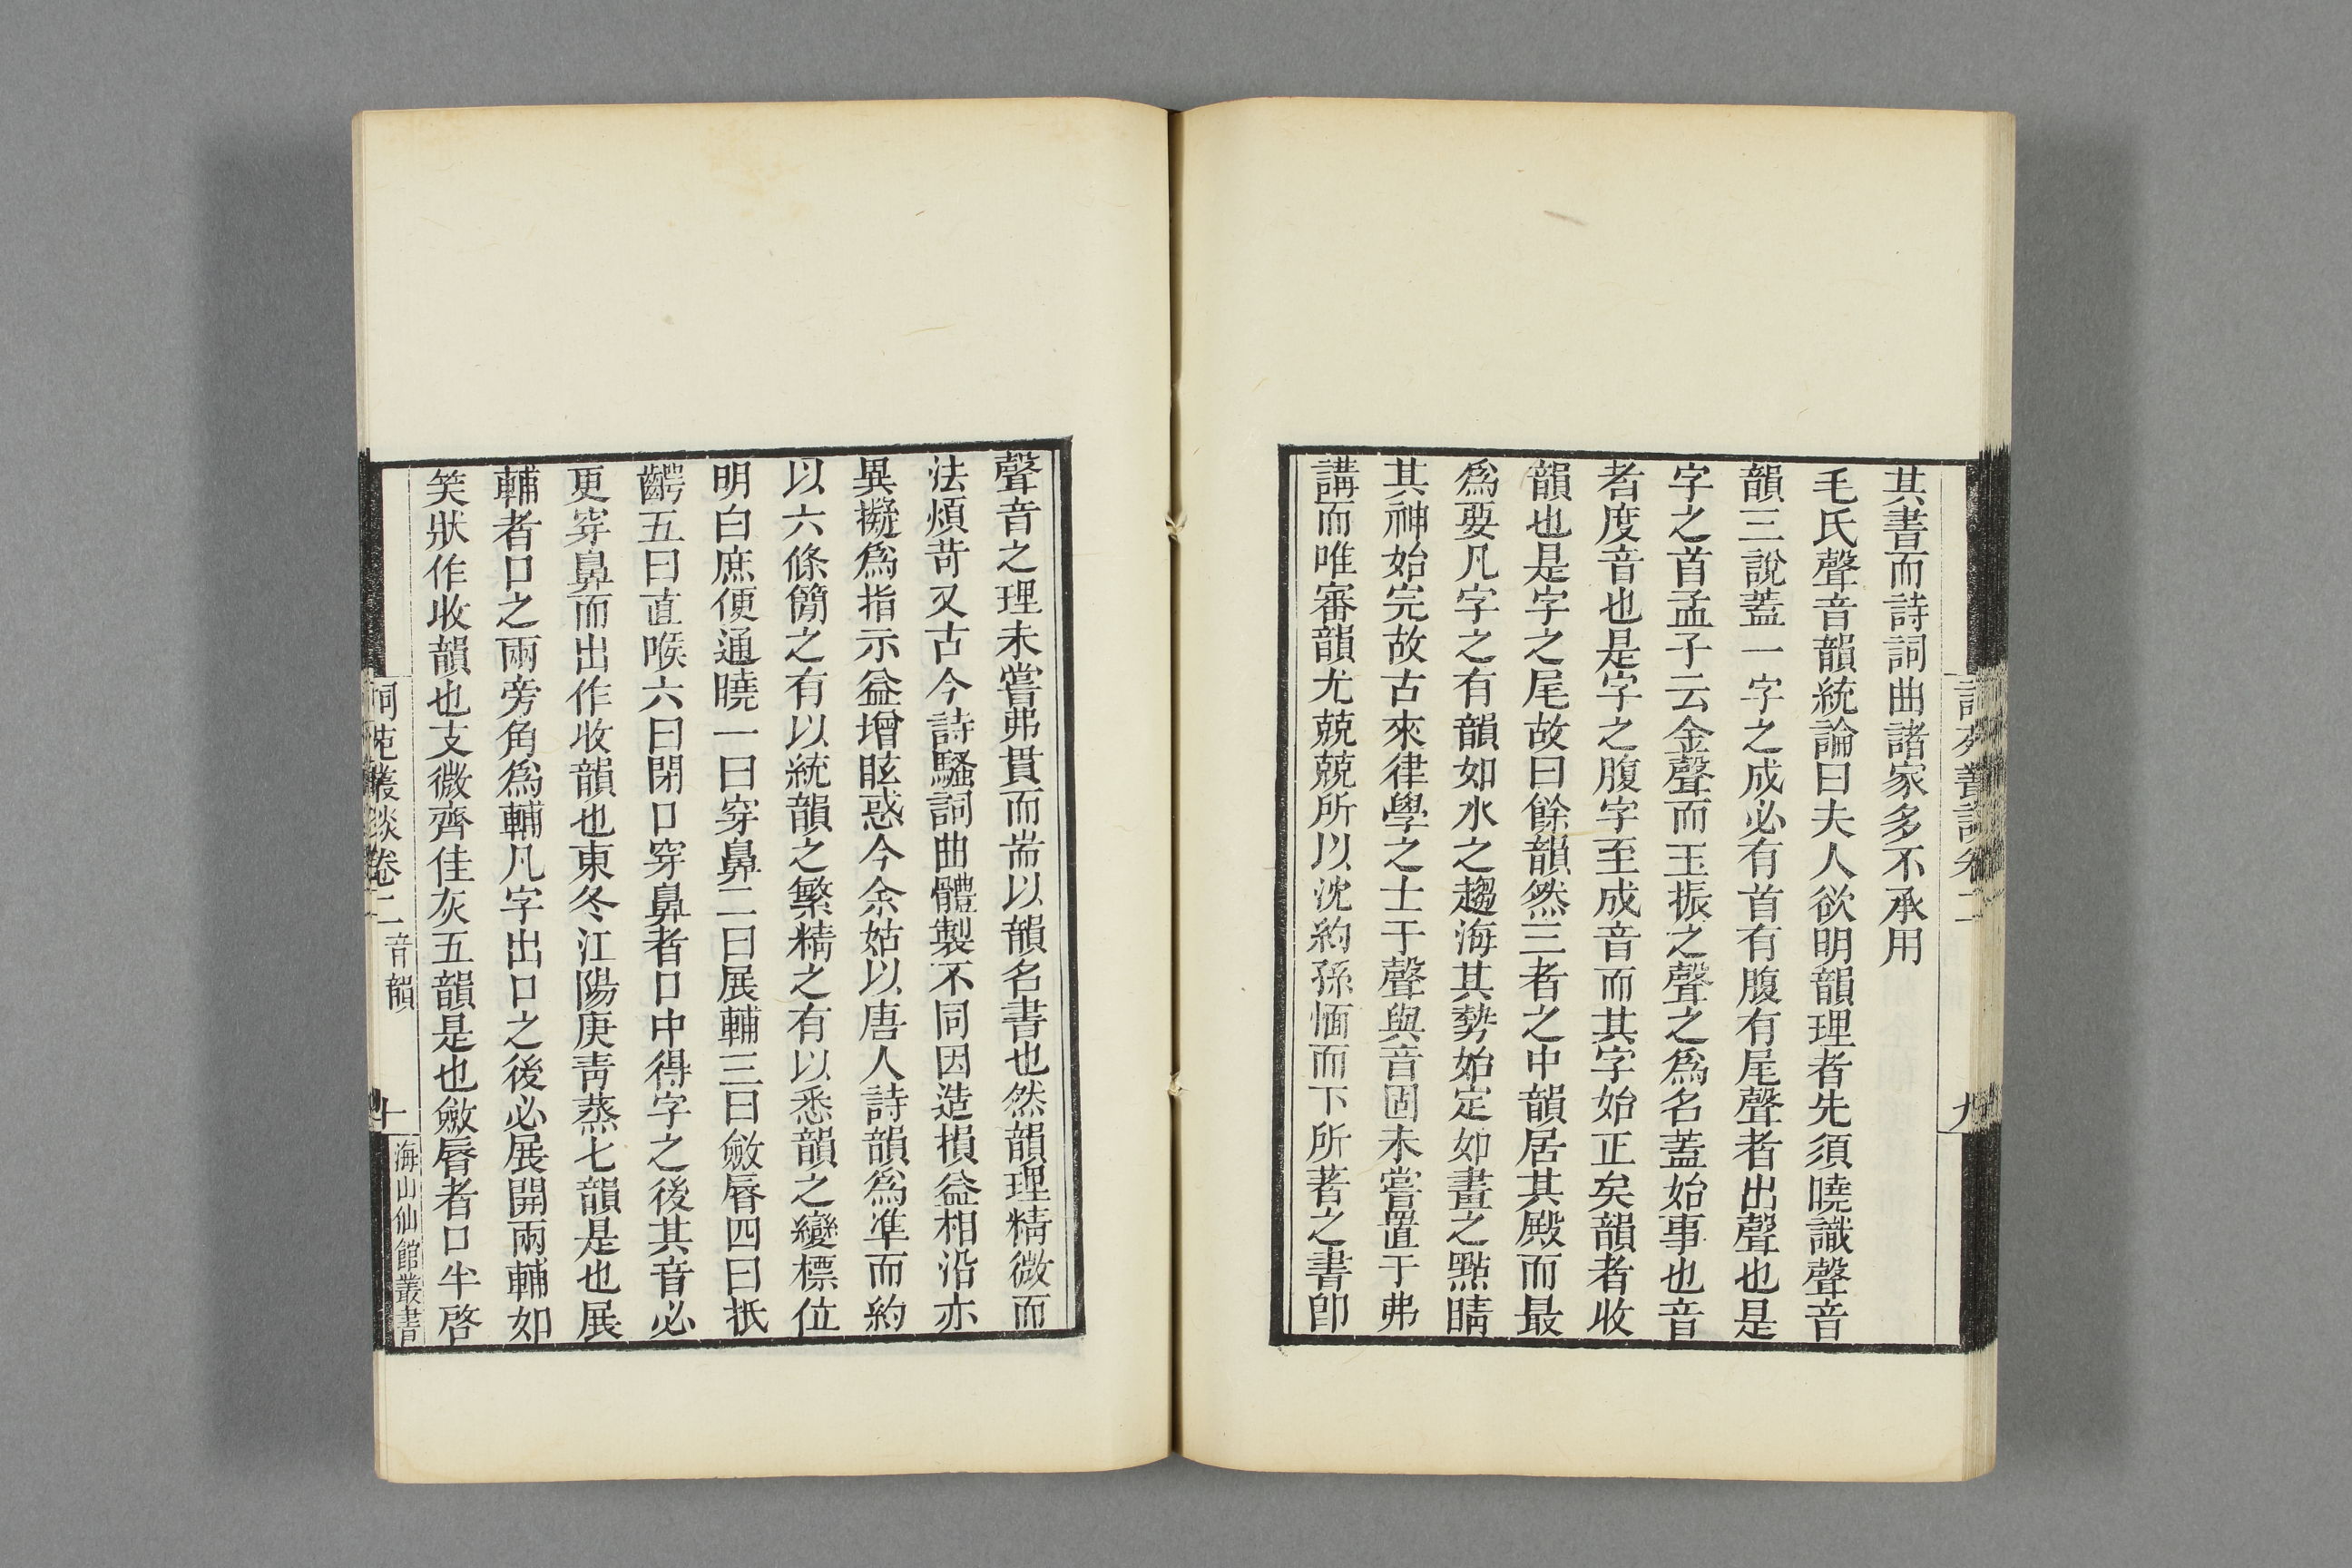 其書而詩詞曲諸家多不承用
毛氏聲音韻統論曰夫人欲明韻理者先須曉識聲音
韻三說蓋一字之成必有首有腹有尾聲者出聲也是
字之首孟子云金聲而玉振之聲之爲名蓋始事也音
者度音也是字之腹字至成音而其字始正矣韻者收
韻也是字之尾故曰餘韻然三者之中韻居其殿而最
爲要凡字之有韻如水之趨海其勢始定如畫之點睛
其神始完故古來律學之士于聲與音固未嘗置于弗
講而唯審韻尤兢兢所以沈約孫愐而下所著之書卽
詞苑叢談卷二
九
聲音之理未嘗弗貫而耑以韻名書也然韻理精微而
法煩苛又古今詩騷詞曲體製不同因造損益相沿亦
異擬爲指示益增眩惑今余姑以唐人詩韻爲準而約
以六條簡之有以統韻之繁精之有以悉韻之變標位
明白庶便通曉一曰穿鼻二曰展輔三曰斂唇四曰抵
齶五曰直喉六曰閉口穿鼻者口中得字之後其音必
更穿鼻而出作收韻也東冬江陽庚靑蒸七韻是也展
輔者口之兩旁角爲輔凡字出口之後必展開兩輔如
笑狀作收韻也支微齊佳灰五韻是也斂唇者口半啓
詞苑叢談卷二 音韻
十
海山仙館叢書